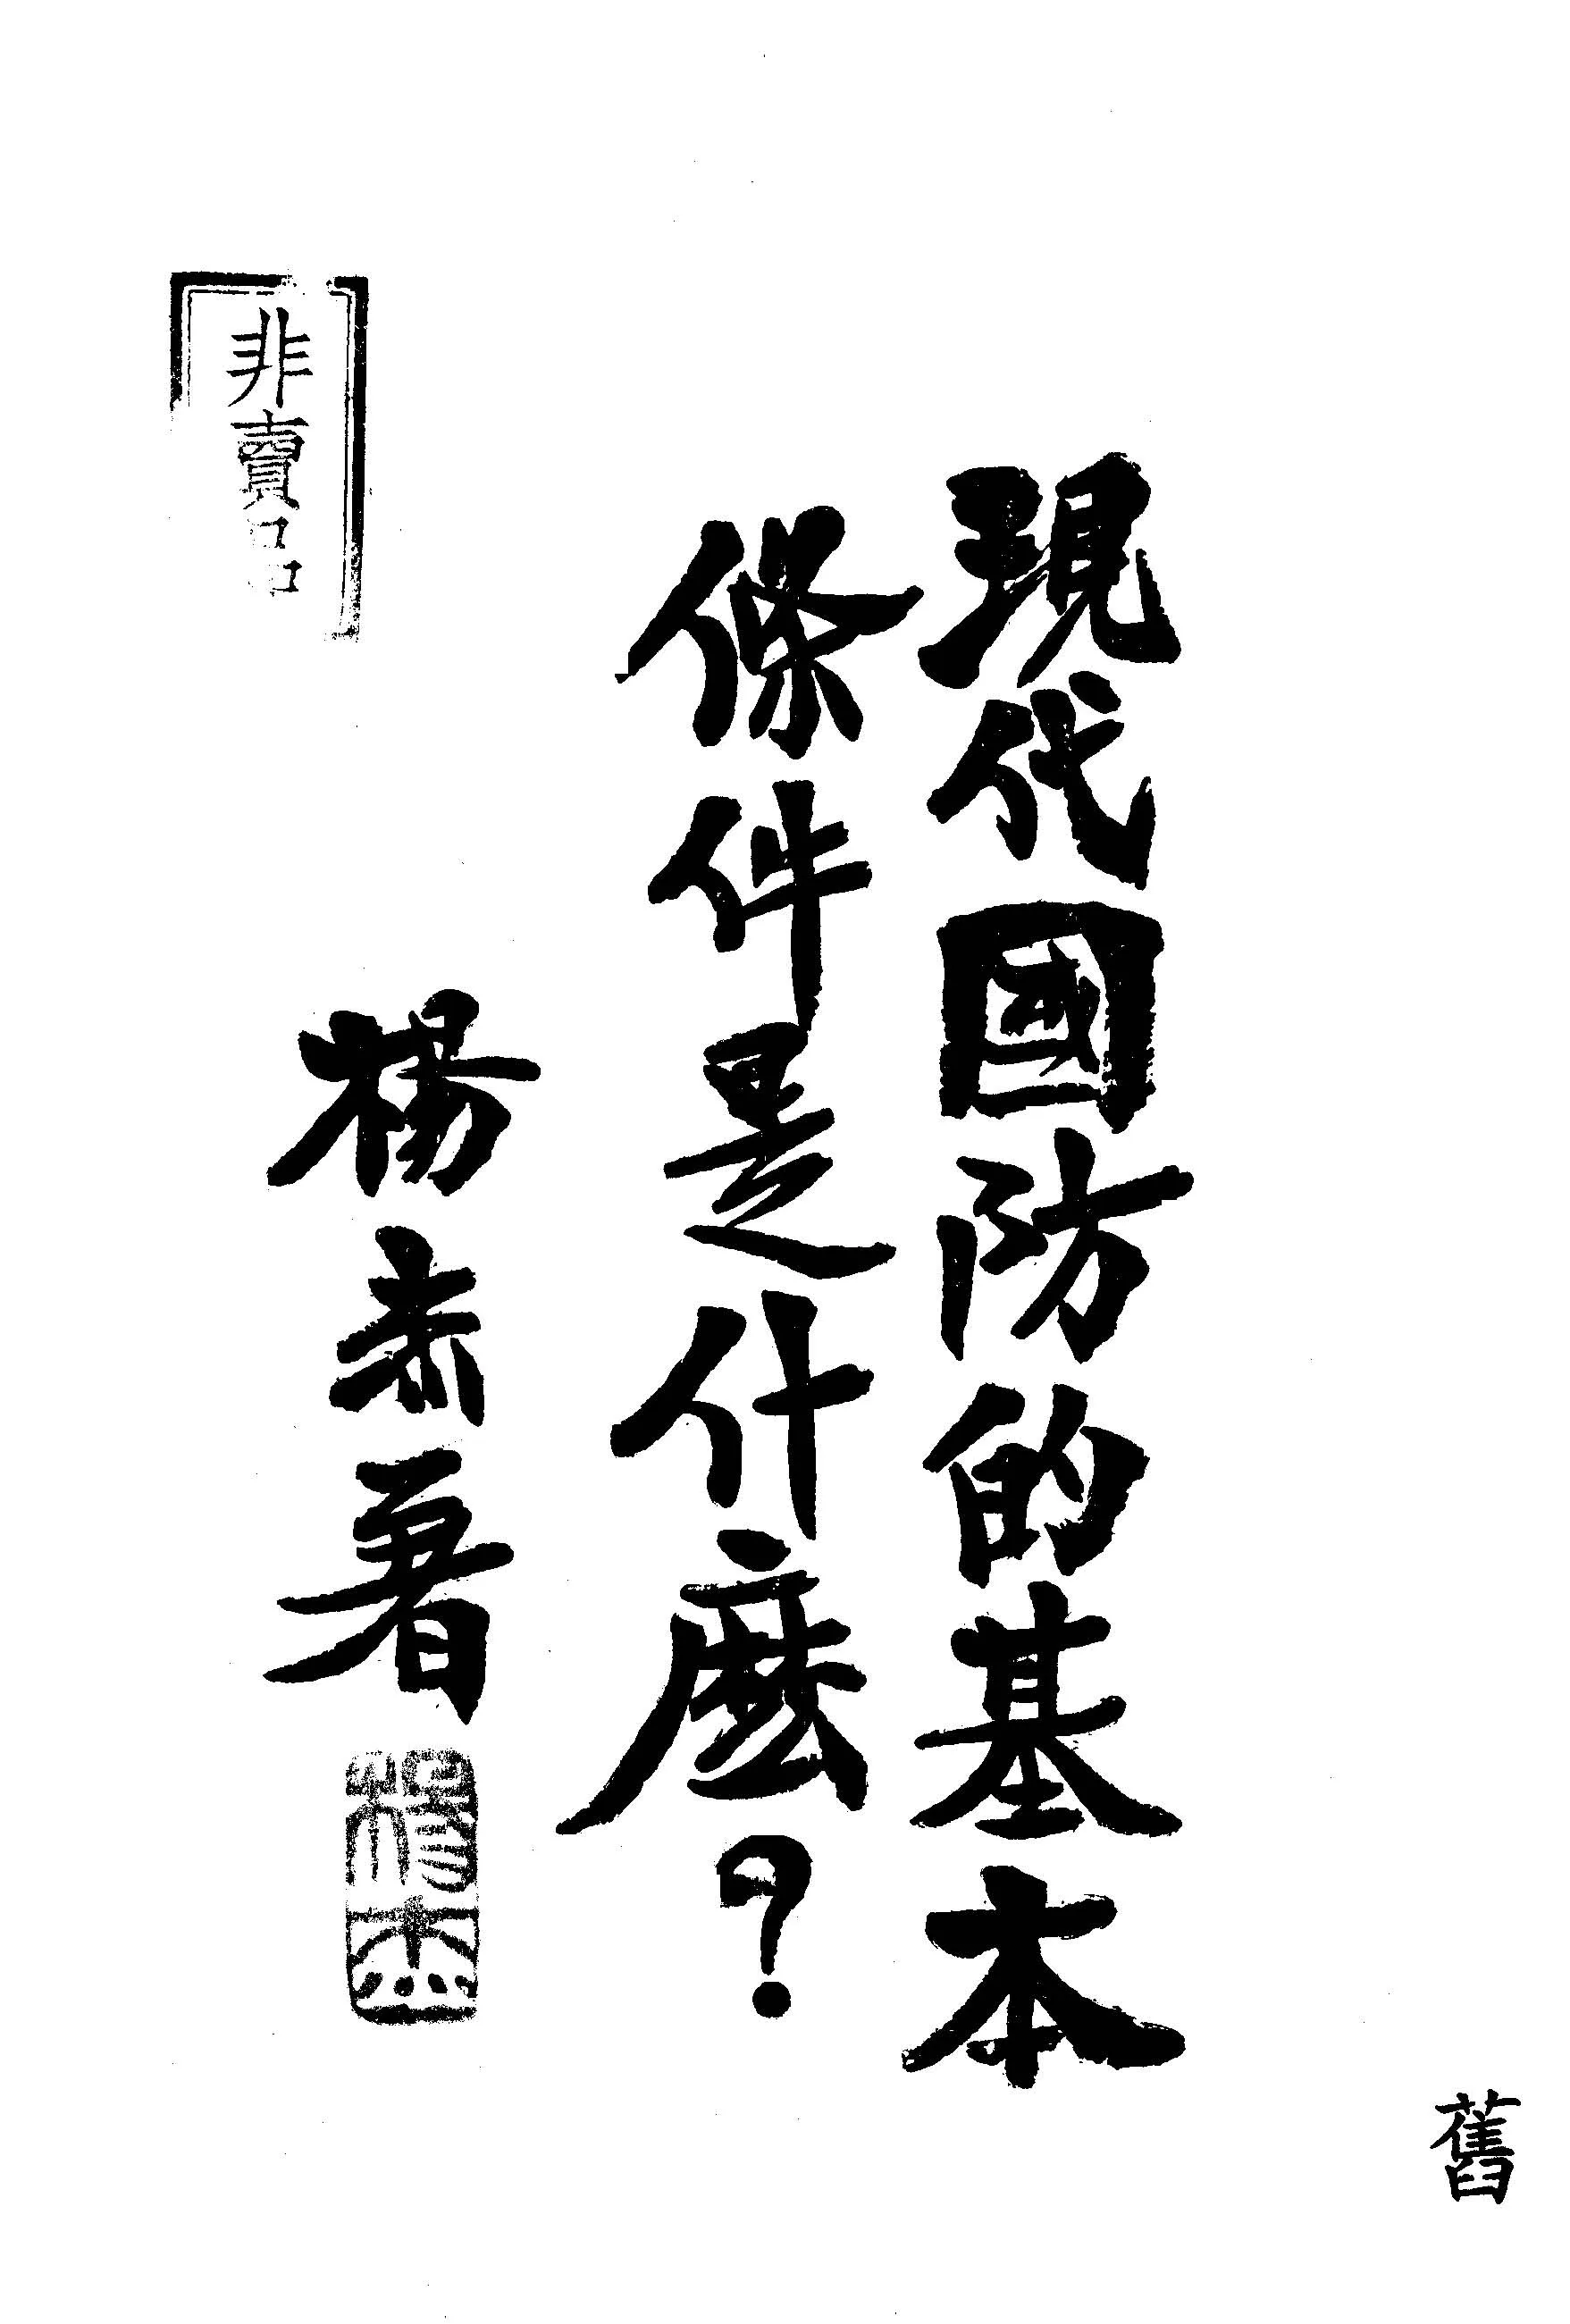 舊
現代國防的基本
條件是什麽?
楊杰著
楊杰
非賣品